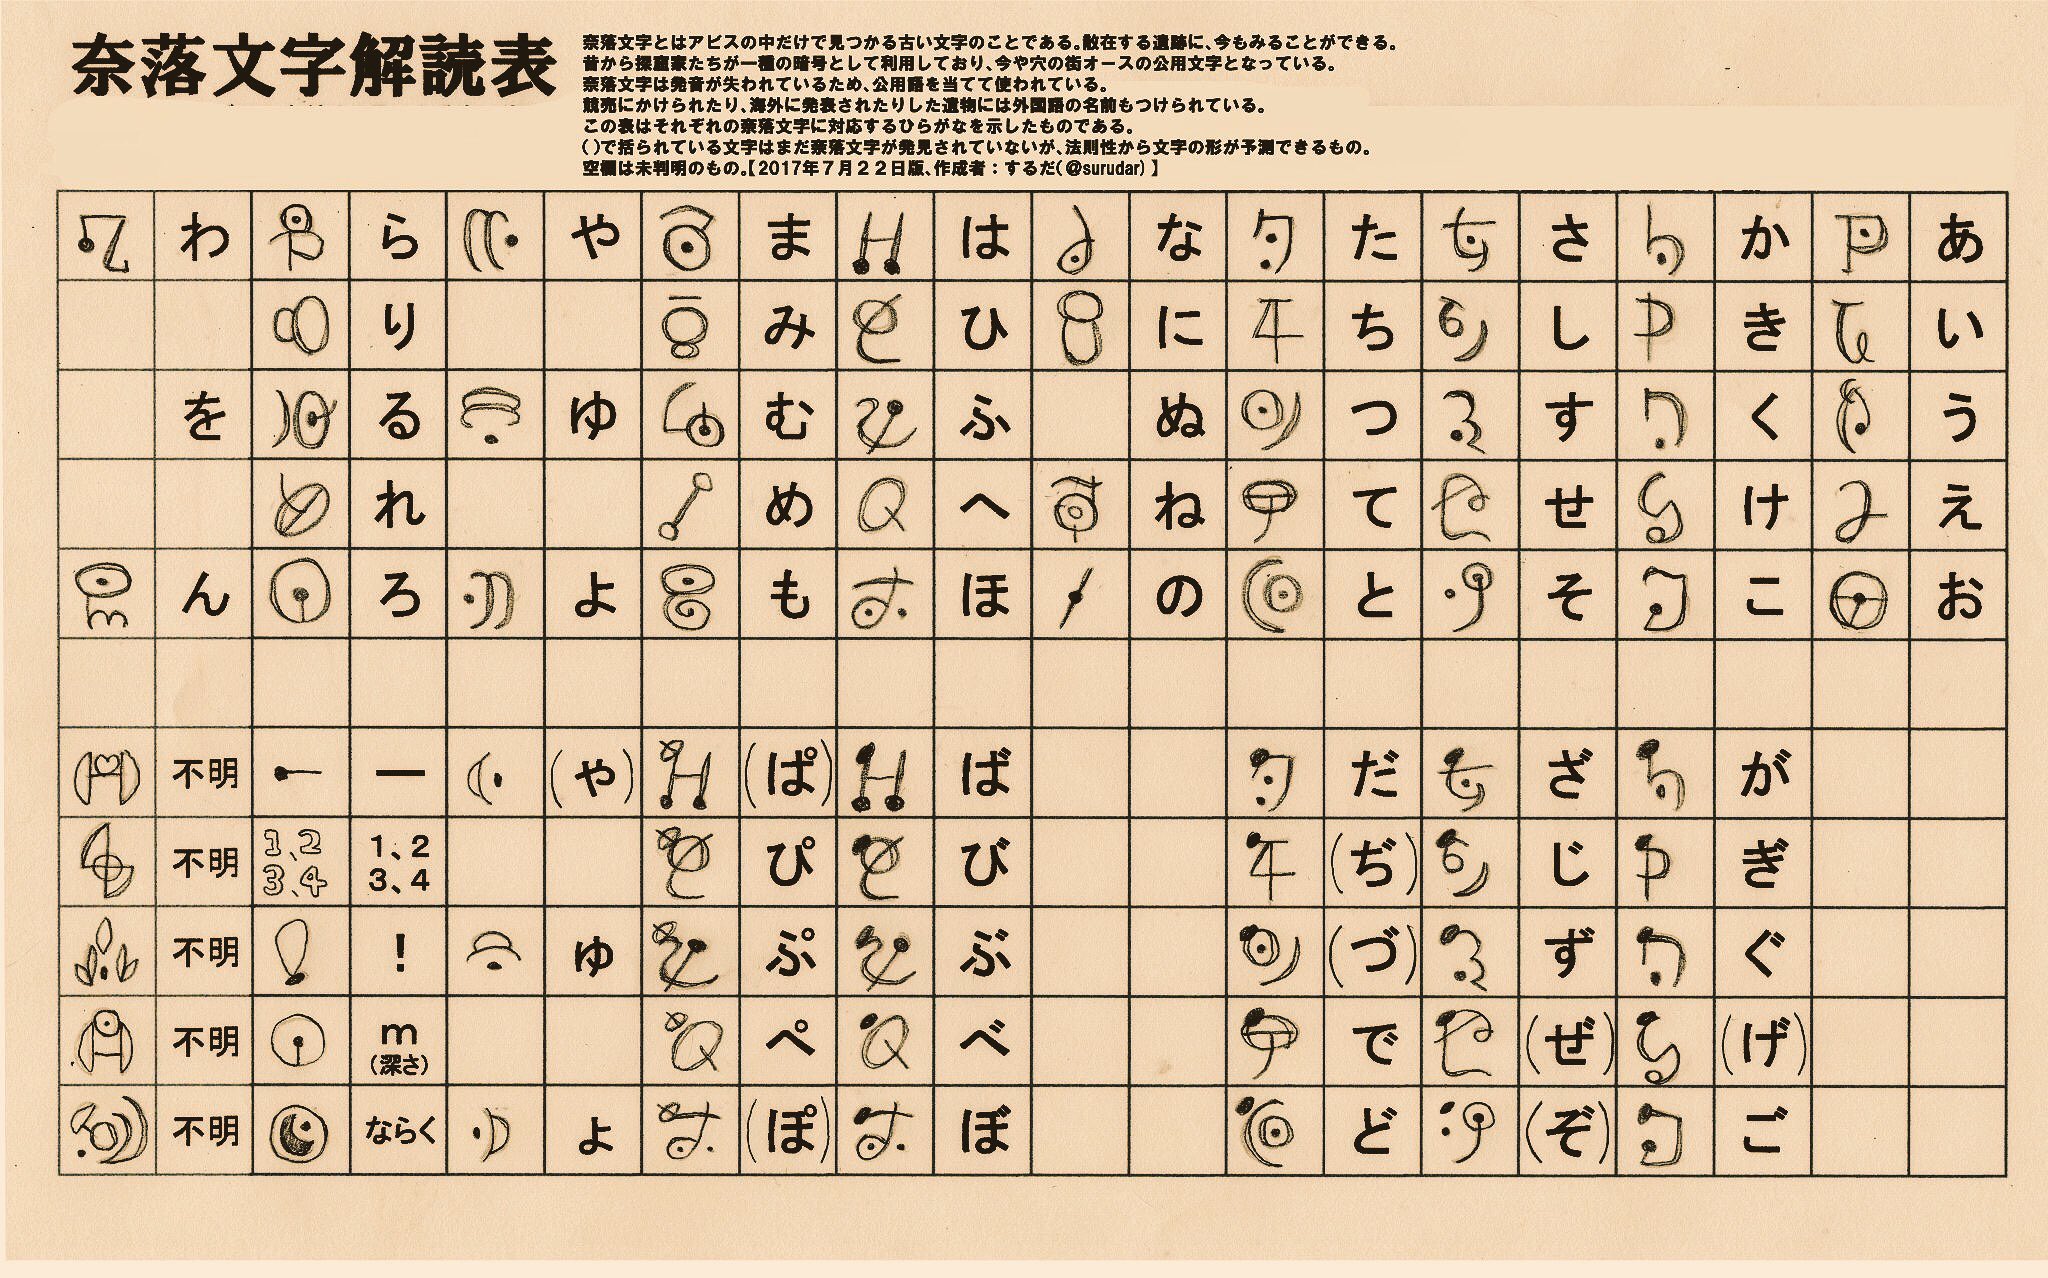 奈落文字解読表
奈落文字とはアビスの中だけで見つかる古い文字のことである。散在する遺跡に、今もみることができる。
昔から探窟家たちが一種の暗号として利用しており、今や穴の街オースの公用文字となっている。
奈落文字は発音が失われているため、公用語を当てて使われている。
競売にかけられたり、海外に発表されたりした遺物には外国語の名前もつけられている。
この表はそれぞれの奈落文字に対応するひらがなを示したものである。
()で括られている文字はまだ奈落文字が発見されていないが、法則性から文字の形が予測できるもの。
空欄は未判明のもの。【2017年7月22日版、作成者:するだ(@surudar)】
わ ら や ま は な た さ か あ
り み ひ に ち し き い
を る ゆ む ふ ぬ つ す く う
れ め へ ね て せ け え
ん ろ よ も ほ の と そ こ お
不明 ー (ゃ) (ぱ) ば だ ざ が
不明 1、2 3、4 1、2 3、4 ぴ び (ぢ) じ ぎ
不明 ! ゅ ぷ ぶ (づ) ず ぐ
不明 m (深さ) ぺ べ で (ぜ) (げ)
不明 ならく ょ (ぽ) ぼ ど (ぞ) ご